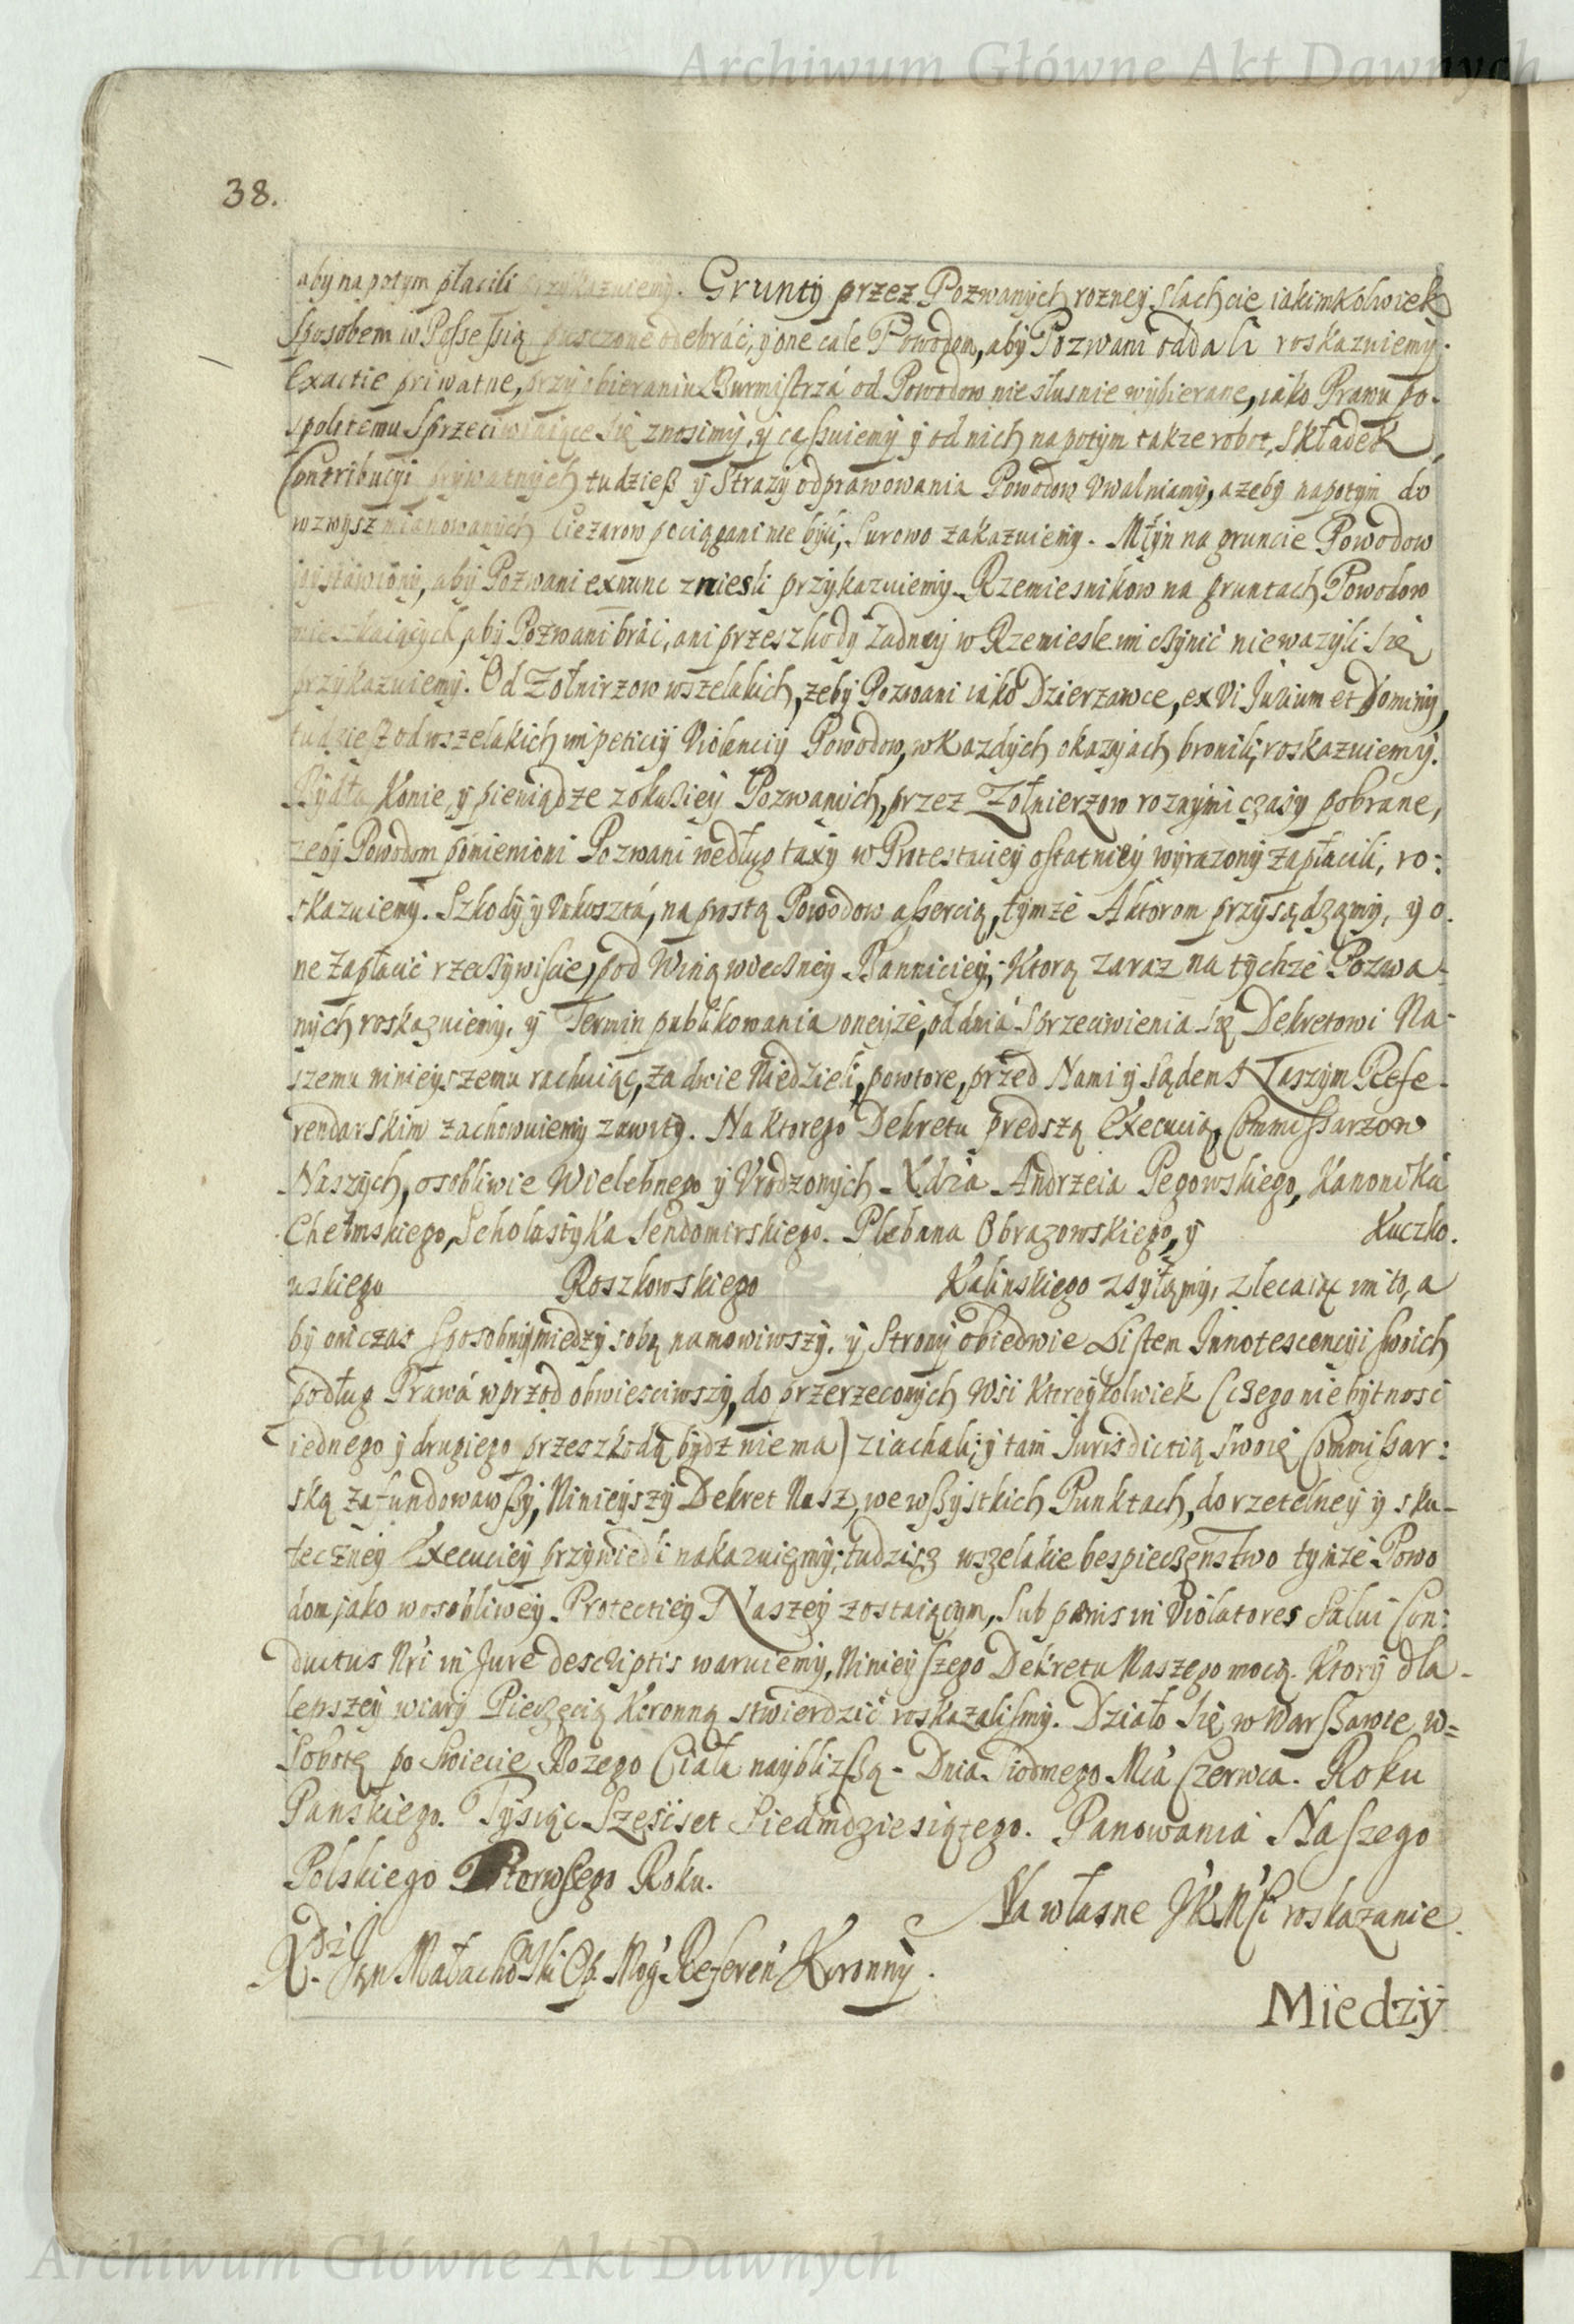 Archiwum Główne Akt Dawnych
38.
aby napotym płacili przykazuiemy. Grunty przez Pozwanych rozney Slachcie iakimkolwiek
Sposobem w Possessią pusczone odebrać, y one cale Powodom, aby Pozwani oddali roskazuiemy.
Exactie priwatne, przy obieraniu Burmistrzá od Powodow niesłusnie wybierane, iako Prawu po-
spolitemu Sprzeciwiaiące się znosimy, y cassuiemy y od nich napotym takze robot, Składek,
Contribucyi prywatnych tudzieß y Strazy odprawowania Powodow Uwalniamy, a zeby napotym do
wzwysz mianowanych Ciezarow pociągani nie byli, Surowo zakazuiemy. Młyn na gruncie Powodow
wystawiony, aby Pozwani exnunc zniesli przykazuiemy. Rzemiesnikow na gruntach Powodow
mieszkaiących, aby Pozwani brać, ani przeszkody żadney w Rzemiesle im czynić niewazyli się
przykazuiemy. Od Zołnirzow wszelakich, zeby Pozwani iako Dzierzawce, ex Vi Jurium et Dominy,
tudzieß od wszelakich impeticiy Violenciy Powodow, w Kazdych okazyach bronili, roskazuiemy.
Bydła Konie, y pieniądze z okaziey Pozwanych, przez Zołnierzow roznymi czasy pobrane,
zeby Powodom pomienioni Pozwani według taxy w Protestaciey ostatniey wyrazony zapłacili, ro:
skazuiemy. Szkody y Vnkosztá, na prostą Powodow assercią, tymze Aktorom przysądzamy, y o-
ne zapłacić rzeczywiscie, pod Winą wieczney Banniciey, Ktorą zaraz na tychże Pozwa-
nych roskazuiemy, y Termin publikowania oneyże, od dniá Sprzeciwienia się Dekretowi Na-
szemu ninieyszemu rachuiąc, za dwie Niedzieli, powtore, przed Nami y Sądem Naszym Refe-
rendarskim zachowuiemy zawity. Na ktorego Dekretu predszą Execucią, Commissarzow
Naszych, osobliwie Wielebnego y Urodzonych Xdza Andrzeia Pegowskiego, Kanoniká
Chełmskiego, Scholastyka Sendomirskiego. Plebana Obrazowskiego, y Kuczko-
wskiego Roszkowskiego Kalinskiego zsyłamy, zlecaiąc im to, a
by oni czas sposobny miedzy sobą namowiwszy, y Strony obiedwie Listem Innotescencyi swoich
podług Prawá wprzod obwiesciwszy, do przerzeconych Wsi Ktoreykolwiek (czego niebytnosc
iednego y drugiego przeszkodą bydz niema) ziachali, y tam Jurisdictią Swoię Commissar:
ską zafundowawßy, Ninieyszy Dekret Nasz, we wßystkich Punktach, do rzetelney y sku-
teczney Execuciey przywiedli nakazuiemy, tudzisz wszelakie bespieczenstwo tymże Powo
dom, jako w osobliwey Protectiey Naszey zostaiącym, Sub pænis in Violatores Salui Con:
ductus Nri in Jure descriptis waruiemy, Ninieyszego Dekretu Naszego mocą. Ktory dla
lepszey wiary Pieczęcią Koronną stwierdzić roskazalismy. Działo się w Warßawie, w=
Sobotę po Swiecie Bozego Ciała nayblizßą - Dnia Siodmego Mca Czerwca. Roku
Panskiego. Tysiąc Szescset Siedmdziesiątego. Panowania Naszego
Polskiego Pierwszego Roku.
Na własne JKMsci roskazanie
Xdz Jan Małachowski Op. Mog. Referen Koronny.
Miedzy
Archiwum Główne Akt Dawnych